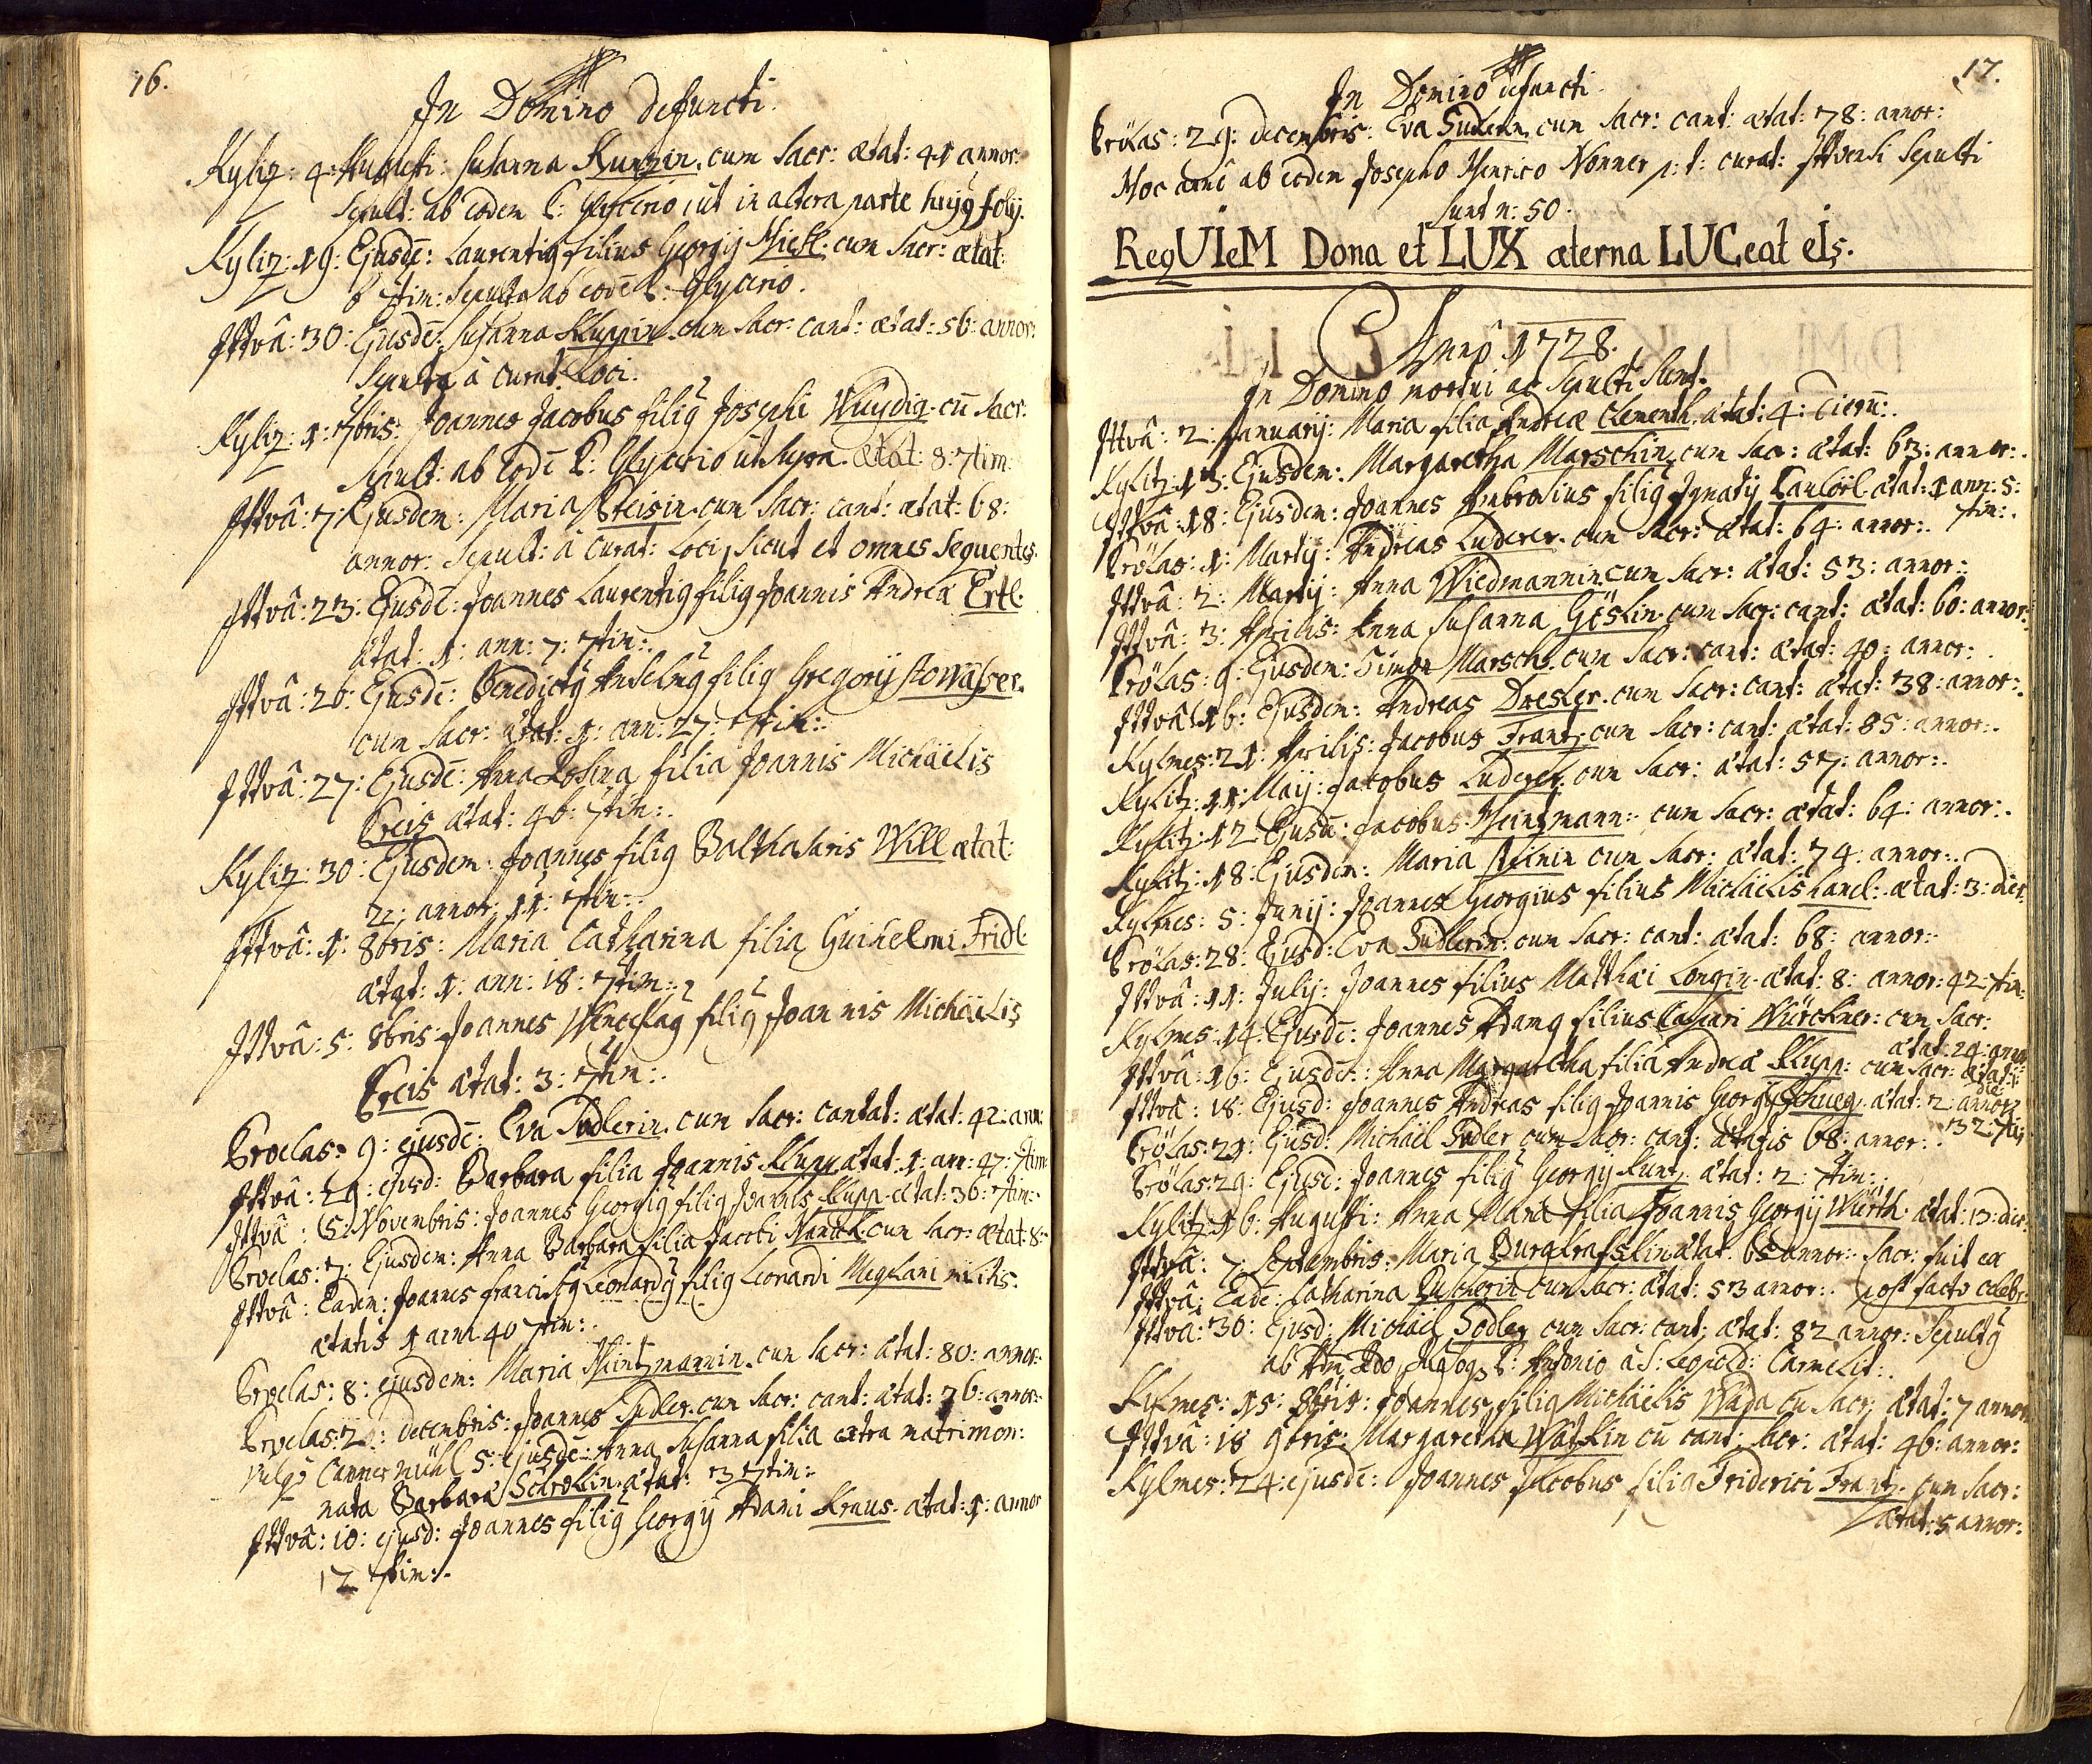 16.
In Domino defuncti.
Kyliz: 4: Augusti: Susanna Kunzin. cum Sacr: ætat: 41 annor:
Sepult: ab eodem P: Glycerio, ut in altera parte hujꝯ folij.
Kyliz: 19: Ejusdē: Laurentiꝯ filius Georgij Hiekl. cum Sacr: ætat:
6 7tim: Sepultꝯ ab eodē P: Glycerio.
Ittvâ: 30: Ejusdē: Susanna Kluppin cum Sacr: cant: ætat: 56: annor:
Sepulta à curat: Loci.
Kyliz: 1: 7bris: Joannes Jacobus filiꝯ Josephi cū Sacr:
Sepult: ab Eodē P: Glycerio ut supra. ætat: 8: 7tim:
Ittvâ: 7: Ejusdem: Maria Preisin. cum Sacr: cant: ætat: 68:
annor: Sepult: à Curat: Loci, sicut et omnes Sequentes.
Ittvâ: 23: Ejusdē: Joannes Laurentiꝯ filiꝯ Joannis Andreæ Ertl.
ætat: 1: ann: 7: 7tim:.
Ittvâ: 26: Ejusdē: Benedictꝯ Anselmꝯ filiꝯ Gregorij Stowasser.
cum Sacr: ætat: 1: ann: 27: 7tim:.
Ittvâ: 27: Ejusdē: Anna Rosina filia Joannis Michäelis
Preis ætat: 46: 7tim:.
Kyliz: 30: Ejusdem: Joannes filiꝯ Balthasaris Will ætat:
2: annor: 11: 7tim:.
Ittvâ: 1: 8bris: Maria Catharina filia Guihelmi Fridl:
ætat: 1: ann: 18: 7tim:.
Ittvâ: 5: 8bris: Joannes Wenceslaꝯ filiꝯ Joannis Michäelis
Preis ætat: 3: 7tim:.
Proelas: 9: ejusdē: Eva Sudlerin. cum Sacr: cantat: ætat: 42: ann:
Ittvâ: 29: ejusd: Barbara filia Joannis Klupp ætat: 1: ann: 47: 7tim:
Ittvâ: 5: Novembris: Joannes Georgiꝯ filiꝯ Joannis Klupp. ætat: 36: 7tim:.
Proelas: 7: Ejusdem: Anna Barbara filia Jacobi cum Sacr: ætat: 8:
Ittvâ: Eadem: Joannes Franciscꝯ Leonardꝯ filiꝯ Leonardi Meglani militis.
ætatis 1 anni 40 7tim:.
Proelas: 8: ejusdem: Maria Heintzmannin. cum Sacr: ætat: 80: annor:
Proelas: 2: decembris: Joannes Sudler. cum Sacr: cant: ætat: 76: annor:
vulgo 5: ejusdē: Anna Susanna filia extra matrimon:
nata Barbara ætat: 3 7tim:
Ittvâ: 10: ejusd: Joannes filiꝯ Georgij Adami Kraus. ætat: 1: annor
12 7tim:.
17.
In Domino defuncti.
Prölas: 29: decembris: Eva Sudlerin cum Sacr: cant: ætat: 78: annor:
Hoc annô ab eodem Josepho Henrico Nonner p: t: curat: Ittvensi Sepulti
sunt n: 50.
ReqUIeM Dona et LUX æterna LUCeat eIs.
Annô 1728.
In Domino mortui ac Sepulti Sunt.
Ittvâ: 2: Januarij: Maria filia Andreæ Clementh. ætat: 4: Dierū:.
Kylitz: 13: Ejusdem: Margaretha Marschin. cum Sacr: ætat: 63: annor:.
Ittvâ: 18: Ejusdem: Joannes Ambrosius filiꝯ Ignatij ætat: 1 ann: 5:
7tim:.
Prölas: 1: Martij: Andreas Luderer. cum Sacr: ætat: 64: annor:.
Ittvâ: 2: Martij: Anna Wiedmannin cum Sacr: ætat: 53: annor:
Ittvâ: 3: Aprilis: Anna Susanna Göslin. cum Sacr: cant: ætat: 60: annor:
Prölas: 9: Ejusdem: Simon Marsch. cum Sacr: cant: ætat: 40: annor:.
Ittvâ: 16: Ejusdem: Andreas Dresler. cum Sacr: cant: ætat: 38: annor:.
Kylmes: 21: Aprilis: Jacobus Frantz cum Sacr: cant: ætat: 85: annor:.
Kylitz: 11: Maij: Jacobus Luderer. cum Sacr: ætat: 57: annor:.
Kylitz: 12 Ejusd: Jacobus Heintzmann: cum Sacr: ætat: 64: annor:.
Kylitz: 18: Ejusdem: Maria cum Sacr: ætat: 74: annor:.
Kylmes: 5: Junij: Joannes Georgius filius Michäelis Hanel: ætat: 3: dier:
Prölas: 28: Ejusd: Eva Sudlerin: cum Sacr: cant: ætat: 68: annor:
Ittvâ: 11: Julij: Joannes filius Matthæi Longin. ætat: 8: annor: 42 7tim:
Kylmes: 14: Ejusdē: Joannes Adamꝯ filius Caspari Würckner: cum Sacr:
ætat: 24: annor
Ittvâ: 16: Ejusdē: Anna Margaretha filia Andreæ Klupp: cum Sacr: ætat:
Ittvâ: 18: Ejusd: Joannes Andreas filiꝯ Joannis Georgij ætat: 2 annor
32: 7tim
Prölas: 29: Ejusd: Michäel Sudler cum Sacr: cant: ætatis 68: annor:.
Prölas: 29: Ejusd: Joannes filiꝯ Georgij Kuntz. ætat: 2: 7tim:.
Kylitz: 16: Augusti: Anna Maria filia Joannis Georgij Würth. ætat: 13: dier:
Ittvâ: 7: Septembris: Maria Burgkrafslin ætat: annor: Sacr: fuit ea
Ittvâ: Eadē: Catharina cum Sacr: ætat: 53 annor:. post facto celebr:
Ittvâ: 30: Ejusd: Michäel Sodler cum Sacr: cant: ætat: 82 annor: Sepultꝯ
ab P: Antonio à S: Leopold: Carmelit:.
Kylmes: 15: 8bris: Joannes filiꝯ Michäelis Wada cū Sacr: ætat: 7 annor:
Ittvâ: 18 9bris: Margaretha cū cant: Sacr: ætat: 46: annor:
Kylmes: 24: ejusdē: Joannes Jacobus filiꝯ Friderici Frantz. cum Sacr:
ætat: 5 annor: